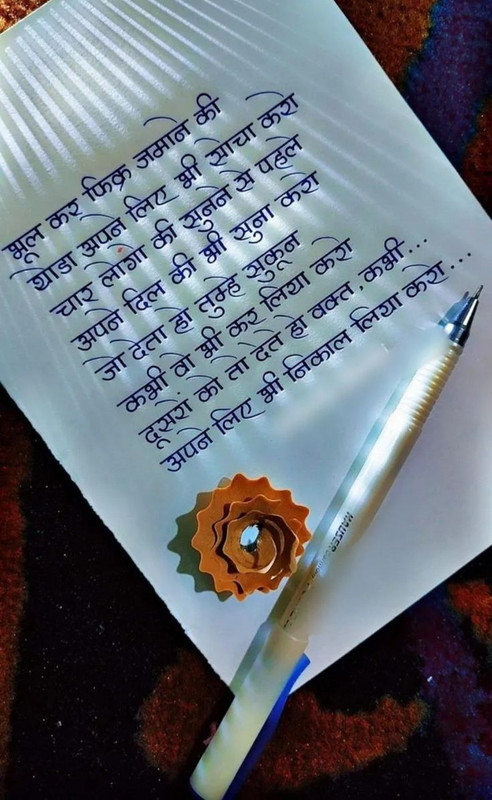 भूल कर फिक्र जमाने की
थोडा अपने लिए भी सोचा करो
चार लोगो की सुनने से पहले
अपने दिल की भी सुना करो
जो देता हो तुम्हे सुकून
कभी वो भी कर लिया करो
दूसरों को तो देते हो वक्त, कभी...
अपने लिए भी निकाल लिया करो...
HAUSER